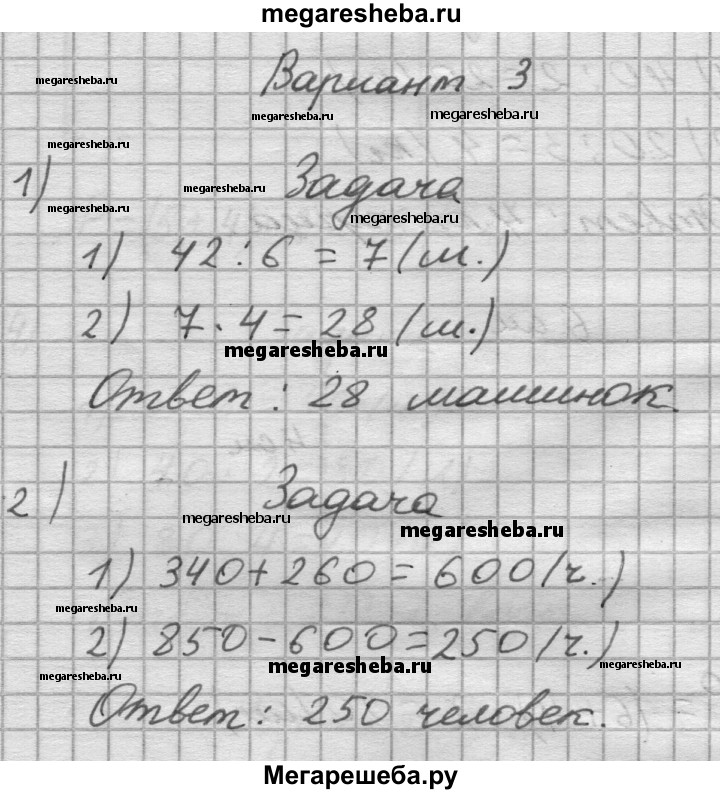 megaresheba.ru
Вариант 3
megaresheba.ru
megaresheba.ru
megaresheba.ru
megaresheba.ru
1) Задача
megaresheba.ru
megaresheba.ru
megaresheba.ru
1) 42 : 6 = 7 (м.)
2) 7 · 4 = 28 (м.)
megaresheba.ru
Ответ : 28 машинок.
2) Задача
megaresheba.ru
megaresheba.ru
1) 340 + 260 = 600 (ч.)
megaresheba.ru
2) 850 - 600 = 250 (ч.)
megaresheba.ru
megaresheba.ru
megaresheba.ru
Ответ : 250 человек.
Мегарешеба.ру